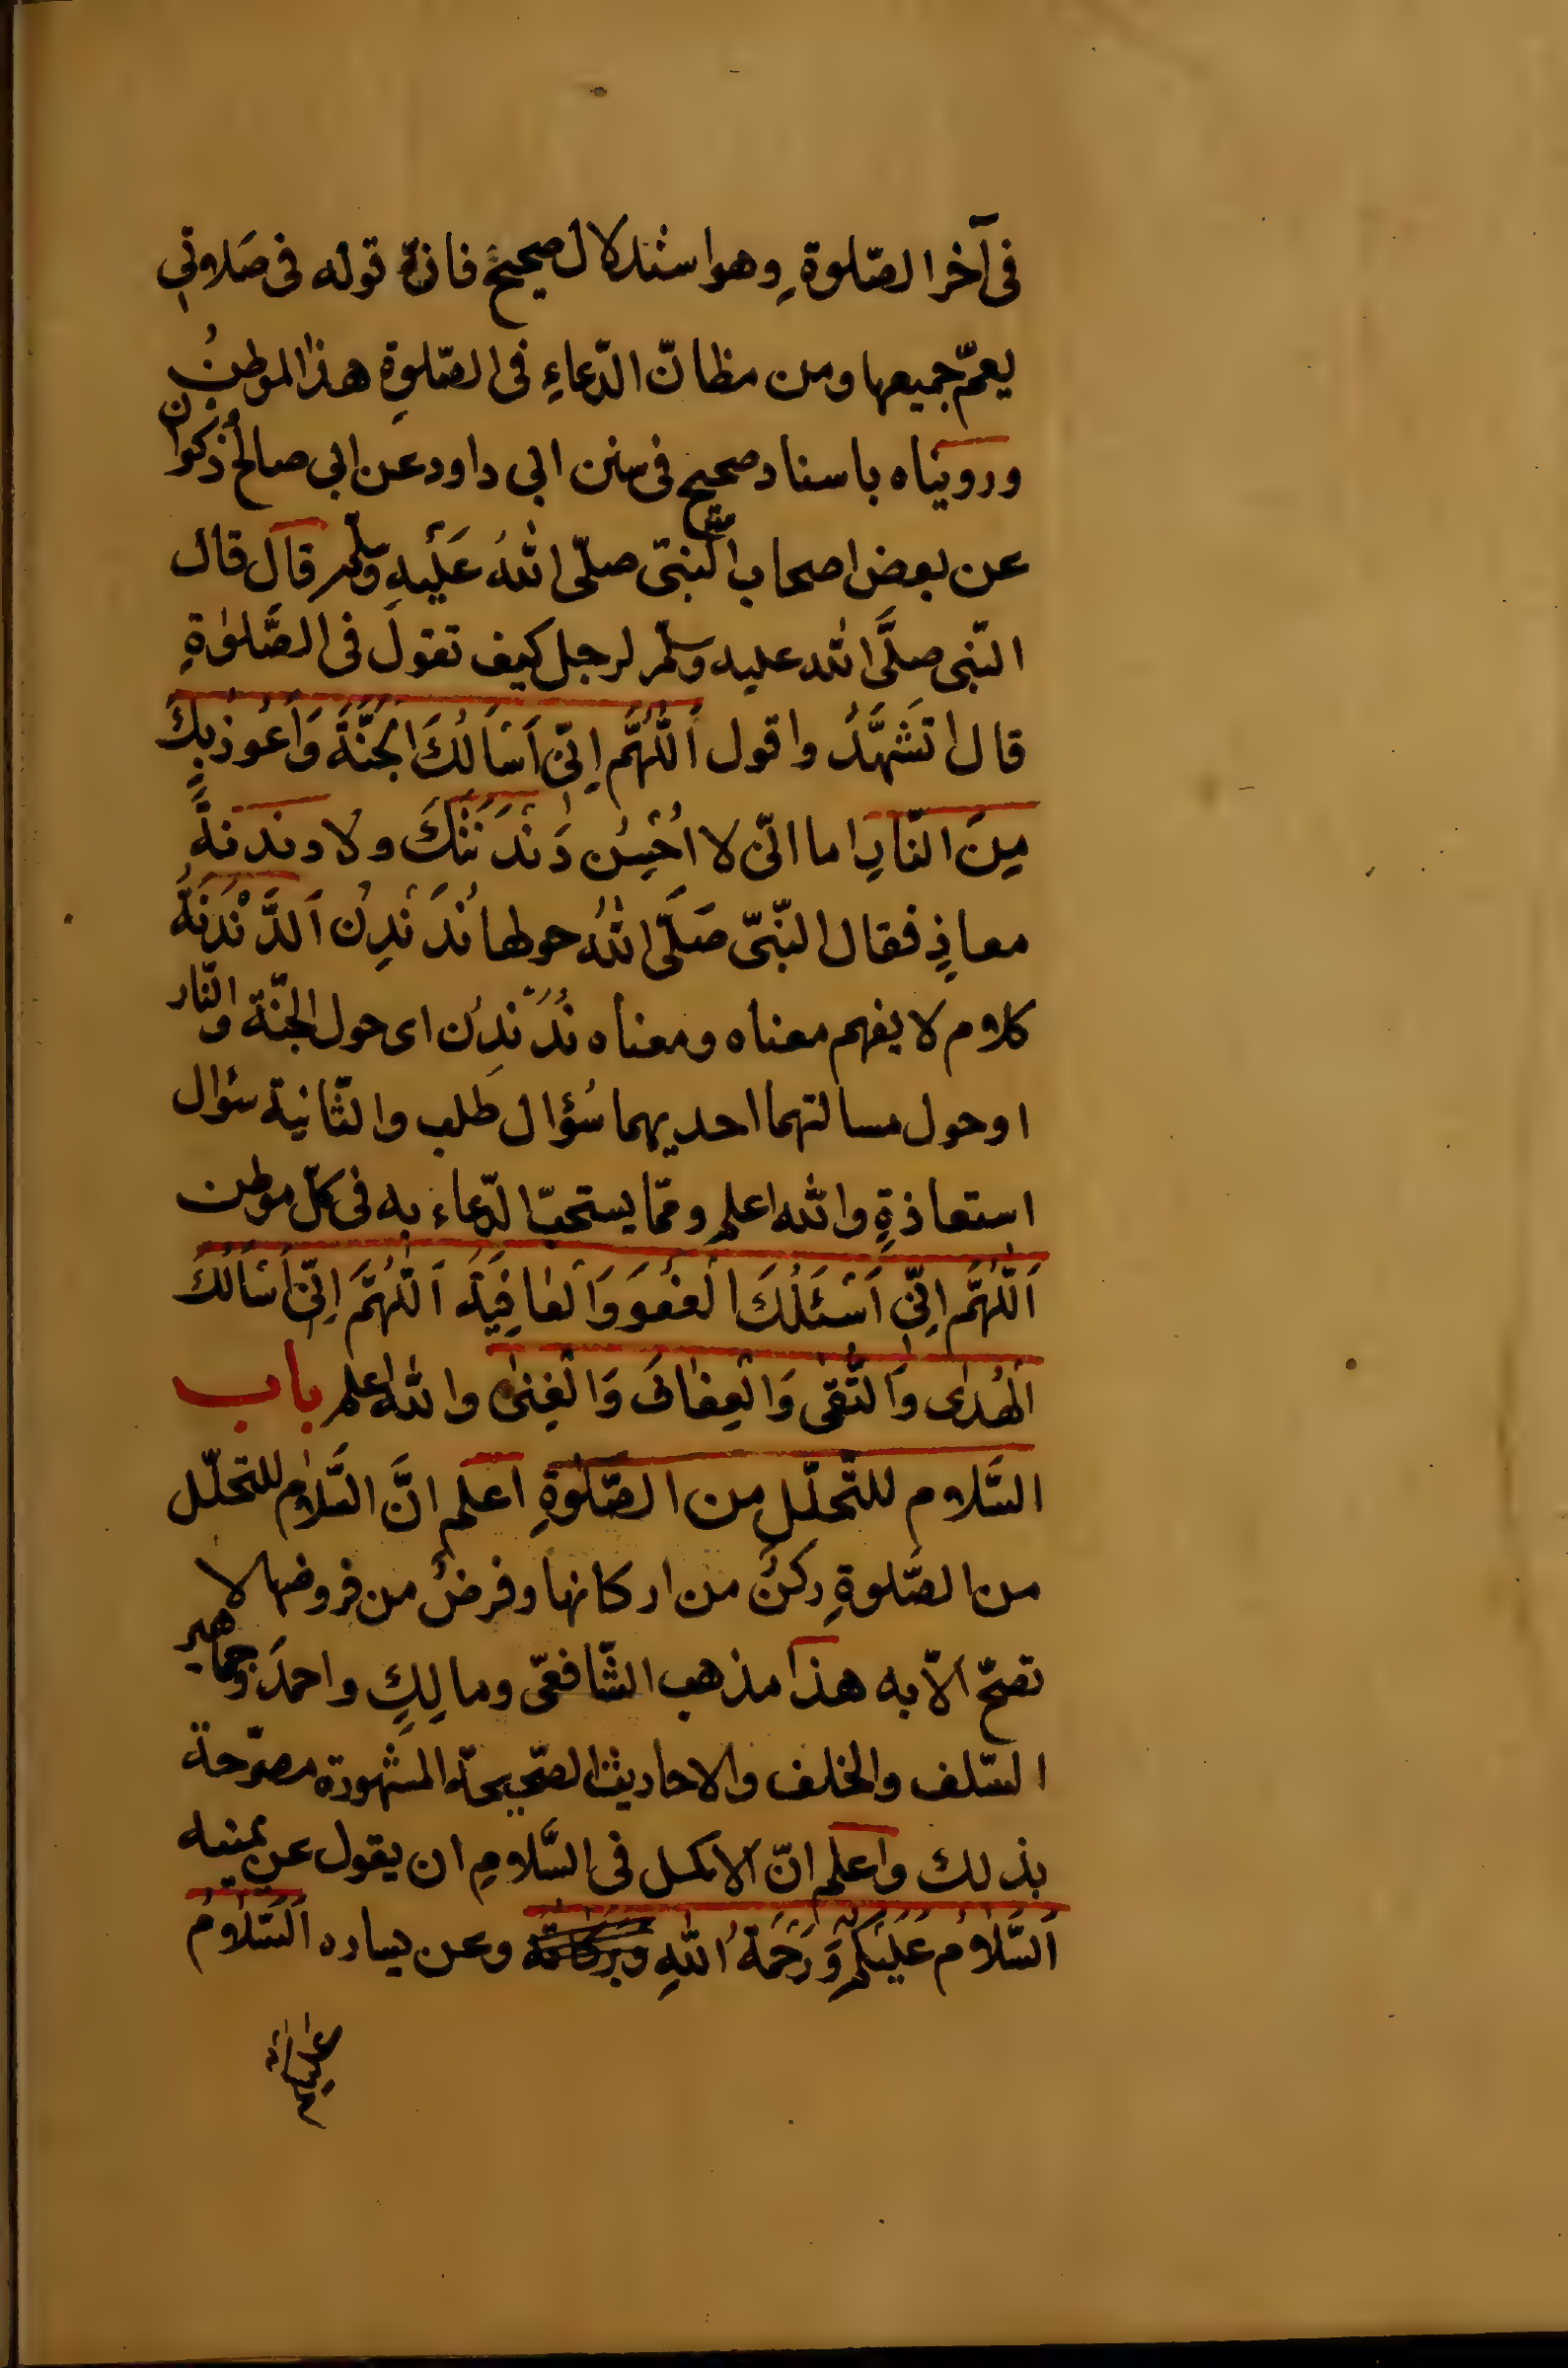 فى آخر الصّلوة وهو استدلال صحيح فانّ قوله فى صَلاوتى
يعمّ جميعها ومن مظانّ الدّعاءِ فى الصّلوةِ هذا الموطنُ
وروينَاه باسناد صحيح فى سنن ابى داود عن ابى صالح ذكوان
عن بعض اصحاب النّبىّ صلّى اللهُ عَلَيهِ وسلّم قال قال
النّبى صلَّى الله عليه وسلّم لرجل كيف تقول فى الصَّلوٰةِ
قال اتَشَهَّدُ واقول اَللّٰهُمَّ اِنّى اَسَالُكَ الجَنَّةَ وَاَعُوذُ بِكَ
مِنَ النّارِ اما انّى لا اُحْسِنُ دَنْدَنَتَكَ ولا دندنةَ
معاذٍ فقال النّبىّ صَلَّى اللهُ حولها نُدَنْدِنُ اَلدَّنْدَنَةُ
كلام لا يفهم معناه ومعناه نُدَنْدِنُ اى حول الجنّة والنّار
او حول مسالتهما احديهما سُؤال طلب والثّانية سؤال
استعاذةٍ والله اعلم وممّا يستحبّ الدّعاء به فى كلّ موطن
اَللّٰهُمَّ اِنّى اَسْئَلُكَ الْعَفْوَ وَاَلعَافِيَةَ اَللّٰهُمَّ اِنّى اَسَالُكَ
الْهُدٰى وَالتُّقٰى وَالْعِفَافَ وَالْغِنٰى والله اعلم باب
السَّلام للتّحلّل من الصّلوةِ اعلم انَّ السَّلامَ للتحلّل
من الصّلوةِ ركنٌ من اركانها وفرضٌ من فروضها لا
تصحّ الّا به هذا مذهب الشّافعّى ومالِكٍ واحمدَ وجماهير
السّلف والخلف والاحاديث الصّحيحة المشهورة مصرّحة
بذلك واعلم انّ الاكمل فى السَّلامِ ان يقول عن يمينه
اَلسَّلَامُ عَلَيْكُمْ وَرَحْمَةُ اللهِ وبركاته وعن يساره اَلسَّلَامُ